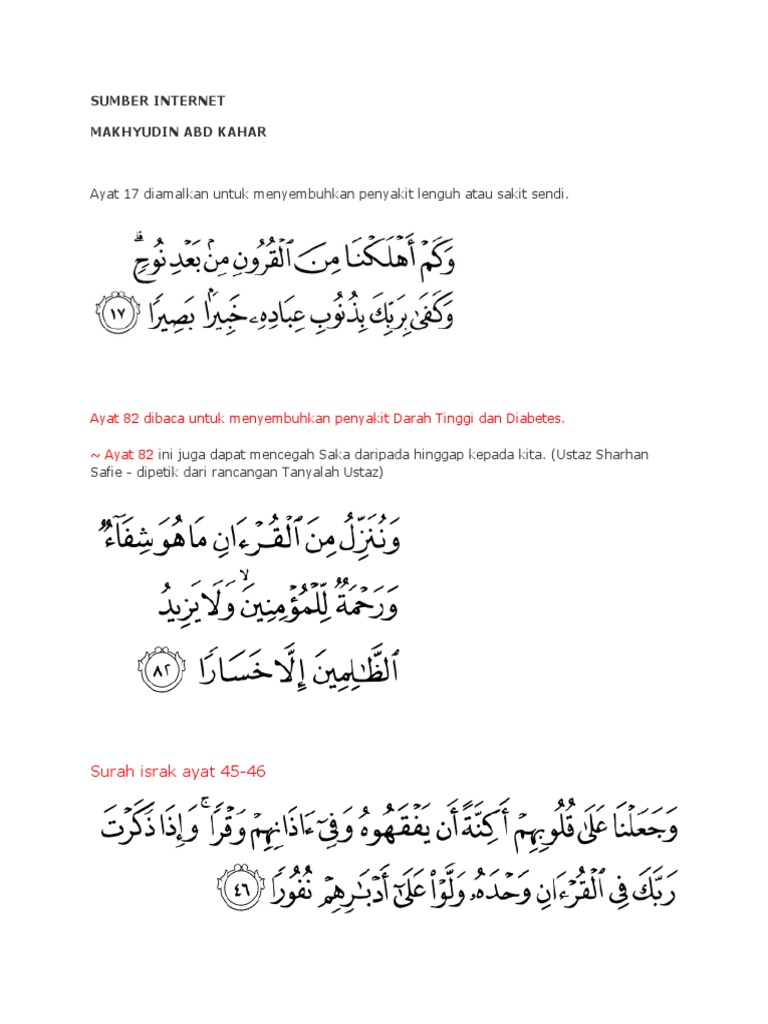 SUMBER INTERNET
MAKHYUDIN ABD KAHAR
Ayat 17 diamalkan untuk menyembuhkan penyakit lenguh atau sakit sendi.
وَكَمْ أَهْلَكْنَا مِنَ ٱلْقُرُونِ مِنۢ بَعْدِ نُوحٍ ۗ
وَكَفَىٰ بِرَبِّكَ بِذُنُوبِ عِبَادِهِۦ خَبِيرَۢا بَصِيرًا ١٧
Ayat 82 dibaca untuk menyembuhkan penyakit Darah Tinggi dan Diabetes.
~ Ayat 82 ini juga dapat mencegah Saka daripada hinggap kepada kita. (Ustaz Sharhan
Safie - dipetik dari rancangan Tanyalah Ustaz)
وَنُنَزِّلُ مِنَ ٱلْقُرْءَانِ مَا هُوَ شِفَآءٌ
وَرَحْمَةٌ لِّلْمُؤْمِنِينَ ۙ وَلَا يَزِيدُ
ٱلظَّـٰلِمِينَ إِلَّا خَسَارًا ٨٢
Surah israk ayat 45-46
وَجَعَلْنَا عَلَىٰ قُلُوبِهِمْ أَكِنَّةً أَن يَفْقَهُوهُ وَفِىٓ ءَاذَانِهِمْ وَقْرًا ۚ وَإِذَا ذَكَرْتَ
رَبَّكَ فِى ٱلْقُرْءَانِ وَحْدَهُۥ وَلَّوْا۟ عَلَىٰٓ أَدْبَـٰرِهِمْ نُفُورًا ٤٦